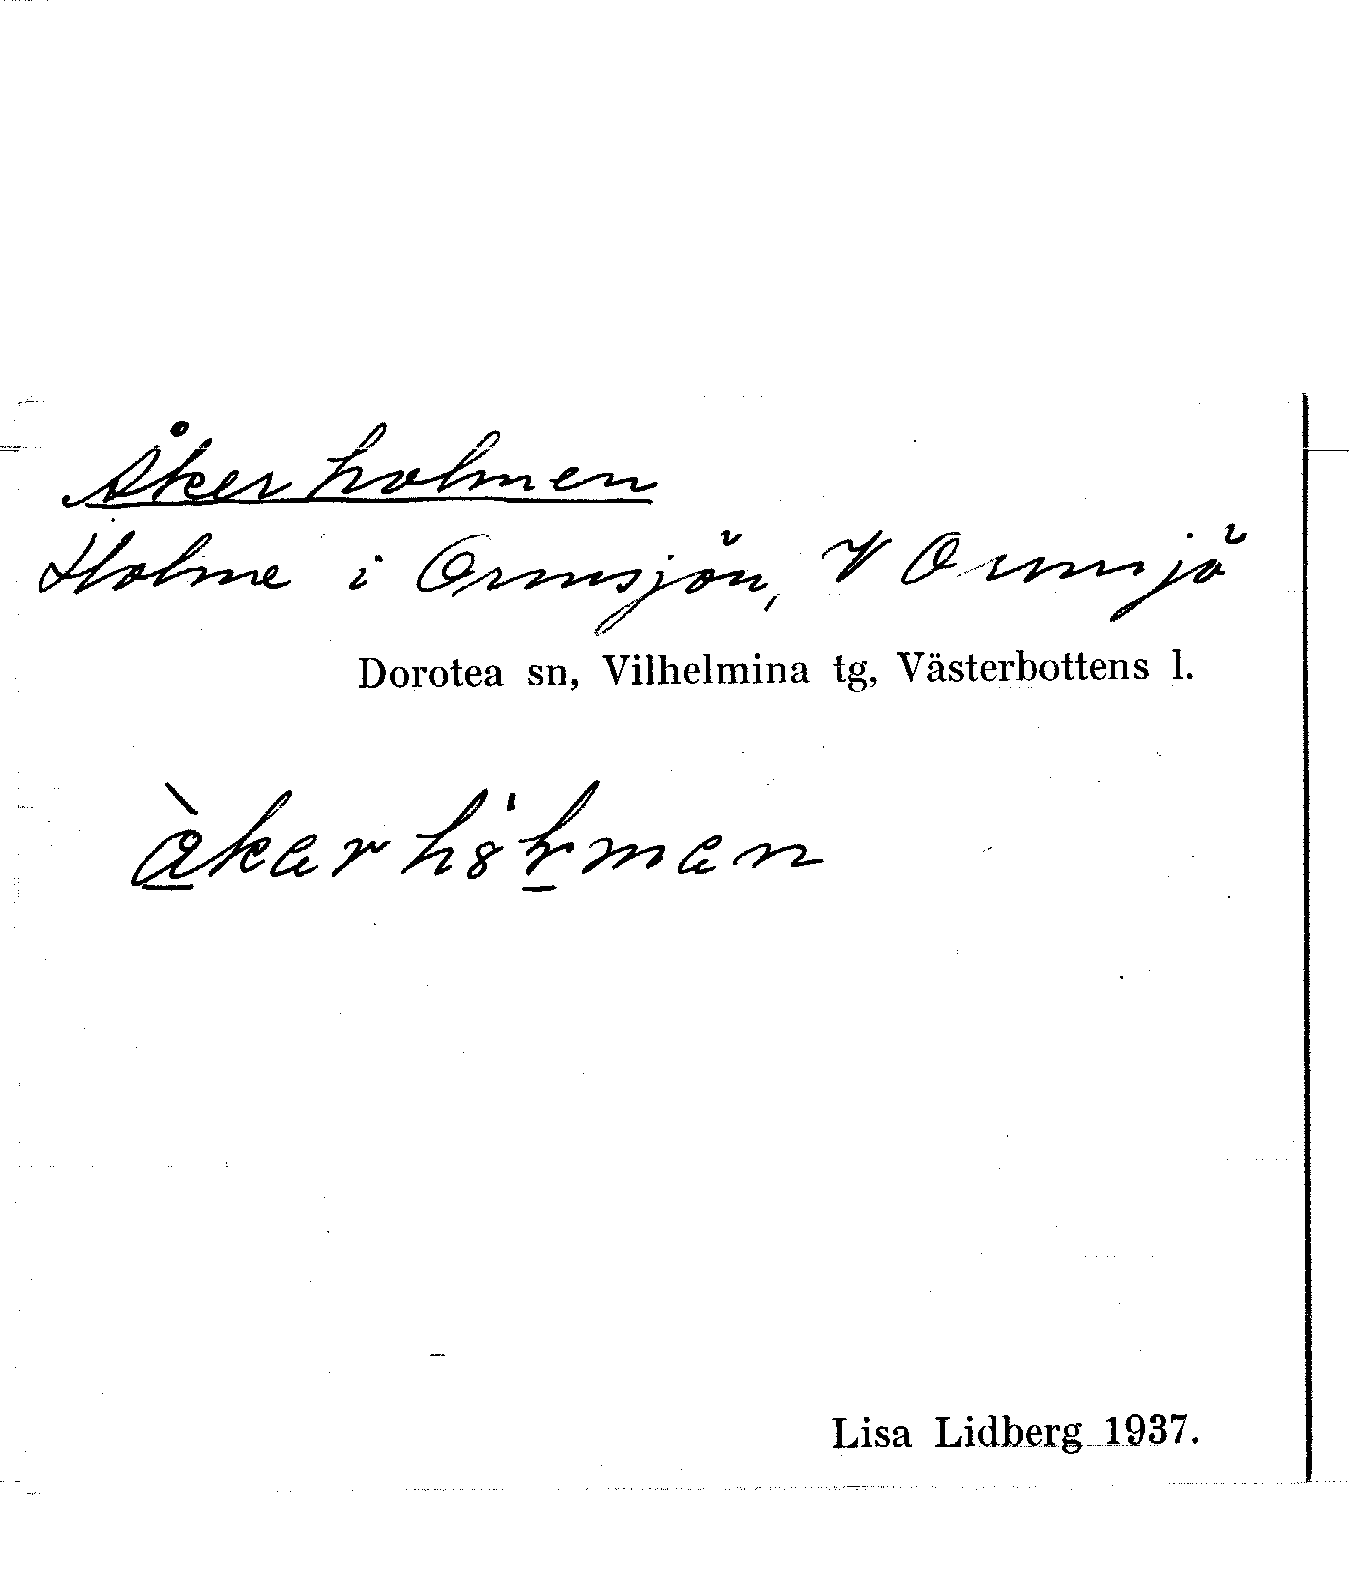 Åkerholmen
Holme i Ormsjön, V Ormsjö
Dorotea sn, Vilhelmina tg, Västerbottens l.
Lisa Lidberg 1937.